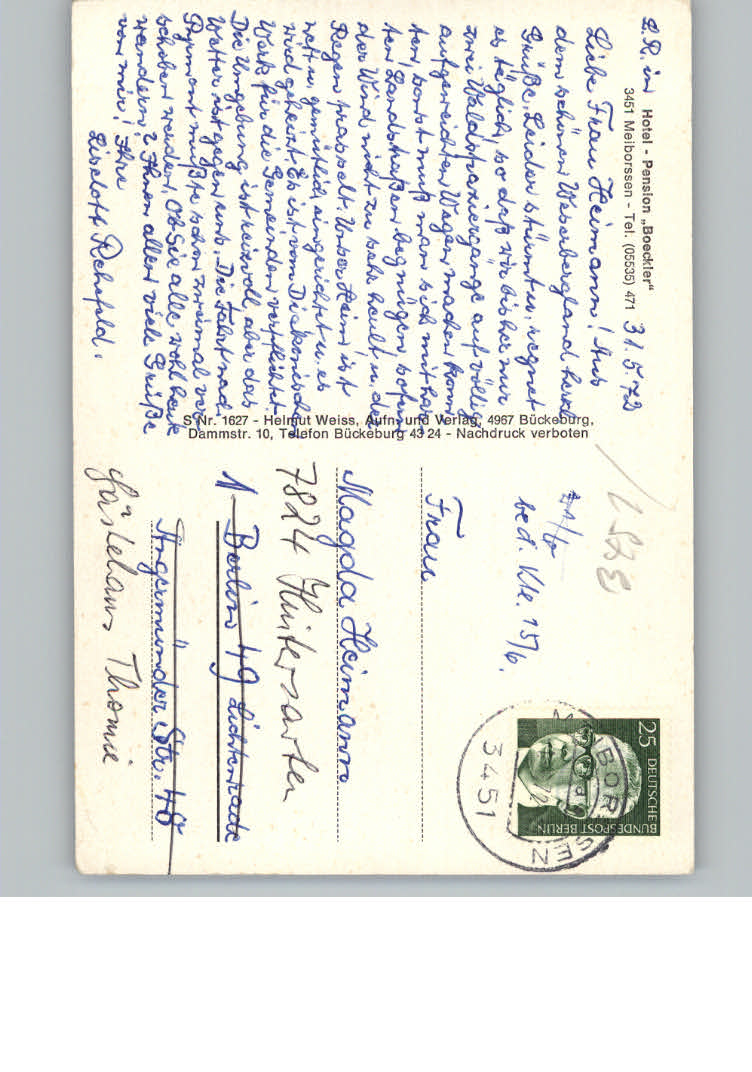 z.Zt. in Hotel - Pension „Boeckler"
3451 Meiborssen - Tel. (05535) 471
31.5.72
Liebe Frau Heimann! Aus
dem schönen Weserbergland herzl.
Grüße. Leider stürmt u. regnet
es täglich, so daß wir bisher nur
zwei Waldspaziergänge auf völlig
aufgeweichten Wegen machen konn-
ten, sonst muß man sich mit har-
ten Landstraßen begnügen, sofern
der Wind nicht zu sehr heult u. der
Regen prasselt. Unser Heim ist
nett u. gemütlich eingerichtet u. es
wird geheizt. Es ist vom Diakonischen
Werk für die Gemeinden verpflichtet.
Die Umgebung ist reizvoll, aber das
Wetter ist gegen uns. Die Fahrt nach
Pyrmont mußte schon zweimal ver-
schoben werden. Ob Sie alle wohl heute
wandern? Ihnen allen viele Grüße
von mir! Ihre
Liselott Rehefeld.
S Nr. 1627 - Helmut Weiss, Aufn. und Verlag, 4967 Bückeburg,
Dammstr. 10, Telefon Bückeburg 43 24 - Nachdruck verboten
bed. Kte. 15/6.
Frau
Magda Heimann
7824 Hinterzarten
1 Berlin 49 Lichtenrade
Angermünder Str. 48
Gästehaus Thomie
25 DEUTSCHE
BUNDESPOST BERLIN
3451 MEIBORSSEN